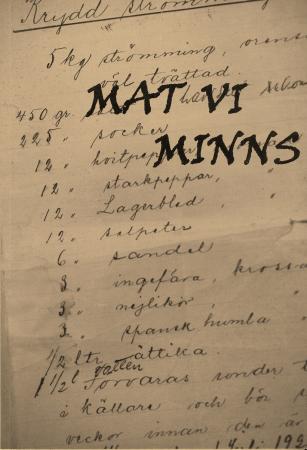 Krydd strömming
5 kg strömming, orens
väl tvättad.
MAT VI
450 gr.
225 " socker
MINNS
12 " starkpeppar, "
12 " Lagerblad, "
12 " salpeter
6 " sandel
3 " ingefära, krossa
3 " nejlikor, "
3 " spansk humla "
1/2 ltr ättika.
1 1/2 l vatten
Förvaras under t
i källare och bör s
veckor innan den är